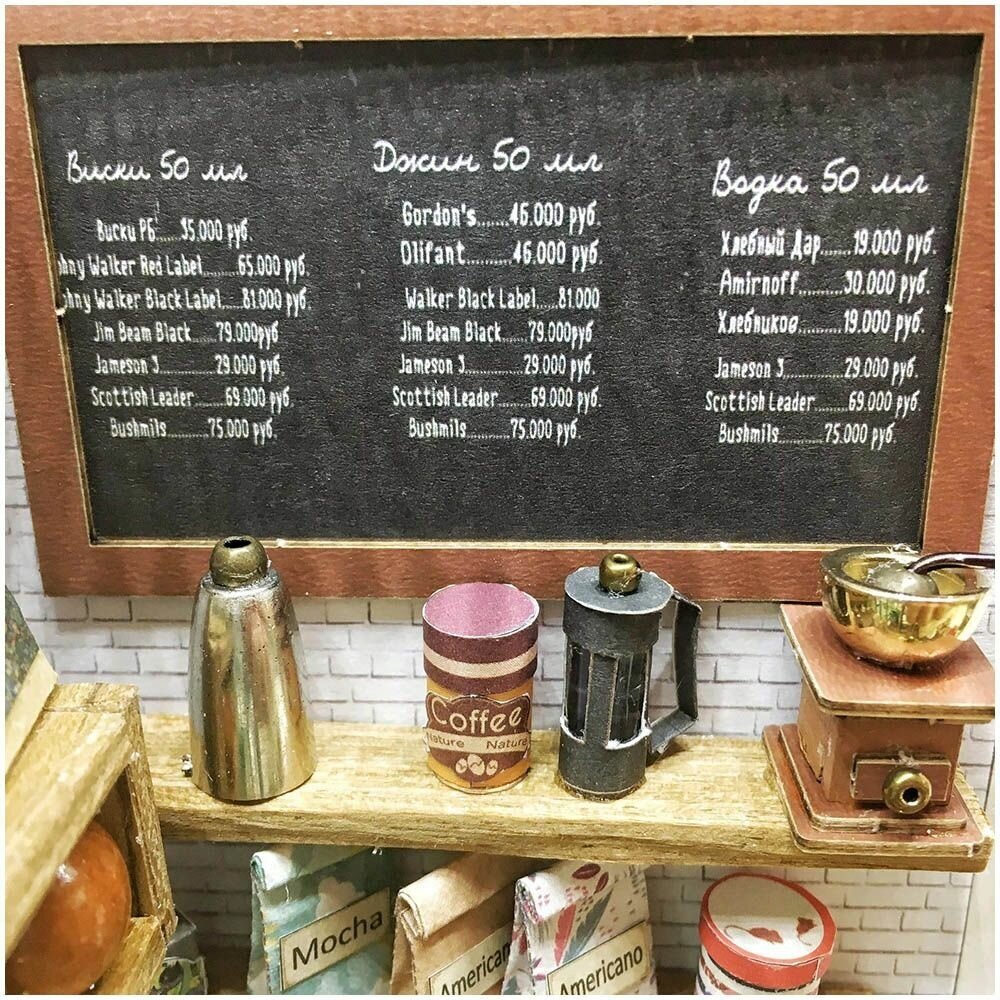 Виски 50 мл
Виски РБ......35.000 руб.
hny Walker Red Label.........65.000 руб.
ohny Walker Black Label.....81.000 руб.
Jim Beam Black......79.000руб
Jameson 3..............29.000 руб.
Scottish Leader........69.000 руб.
Bushmils..........75.000 руб.
Джин 50 мл
Gordon's.......46.000 руб.
Olifant..........46.000 руб.
Walker Black Label.....81.000
Jim Beam Black......79.000руб
Jameson 3..............29.000 руб.
Scottish Leader........69.000 руб.
Bushmils..........75.000 руб.
Водка 50 мл
Хлебный Дар.......19.000 руб.
Amirnoff.........30.000 руб.
Хлебников.........19.000 руб.
Jameson 3..............29.000 руб.
Scottish Leader........69.000 руб.
Bushmils..........75.000 руб.
Coffee
Nature Nature
Mocha
American
Americano